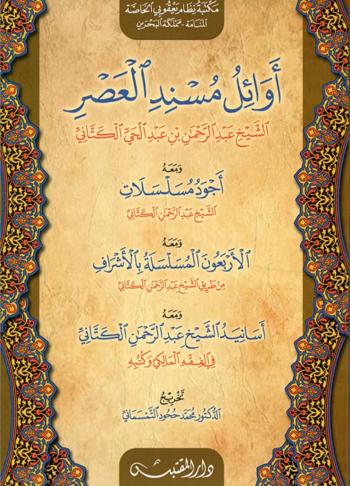 مكتبة نظام يعقوبي الخاصة
المنامة - مملكة البحرين
أَوَائِلُ مُسْنِدِ الْعَصْرِ
الشَّيْخِ عَبْدِ الرَّحْمٰنِ بْنِ عَبْدِ الْحَيِّ الْكَتَّانِيِّ
وَمَعَهُ
أَجْوَدُ مُسَلْسَلَاتِ
الشَّيْخِ عَبْدِ الرَّحْمٰنِ الْكَتَّانِيِّ
وَمَعَهُ
الْأَرْبَعُونَ الْمُسَلْسَلَةُ بِالْأَشْرَافِ
مِنْ طَرِيقِ الشَّيْخِ عَبْدِ الرَّحْمٰنِ الْكَتَّانِيِّ
وَمَعَهُ
أَسَانِيدُ الشَّيْخِ عَبْدِ الرَّحْمٰنِ الْكَتَّانِيِّ
فِي الْفِقْهِ الْمَالِكِيِّ وَكُتُبِهِ
تَخْرِيجُ
الدُّكْتُورِ مُحَمَّد حَحُود التَّمْسَمَانِيِّ
دار المقتبس